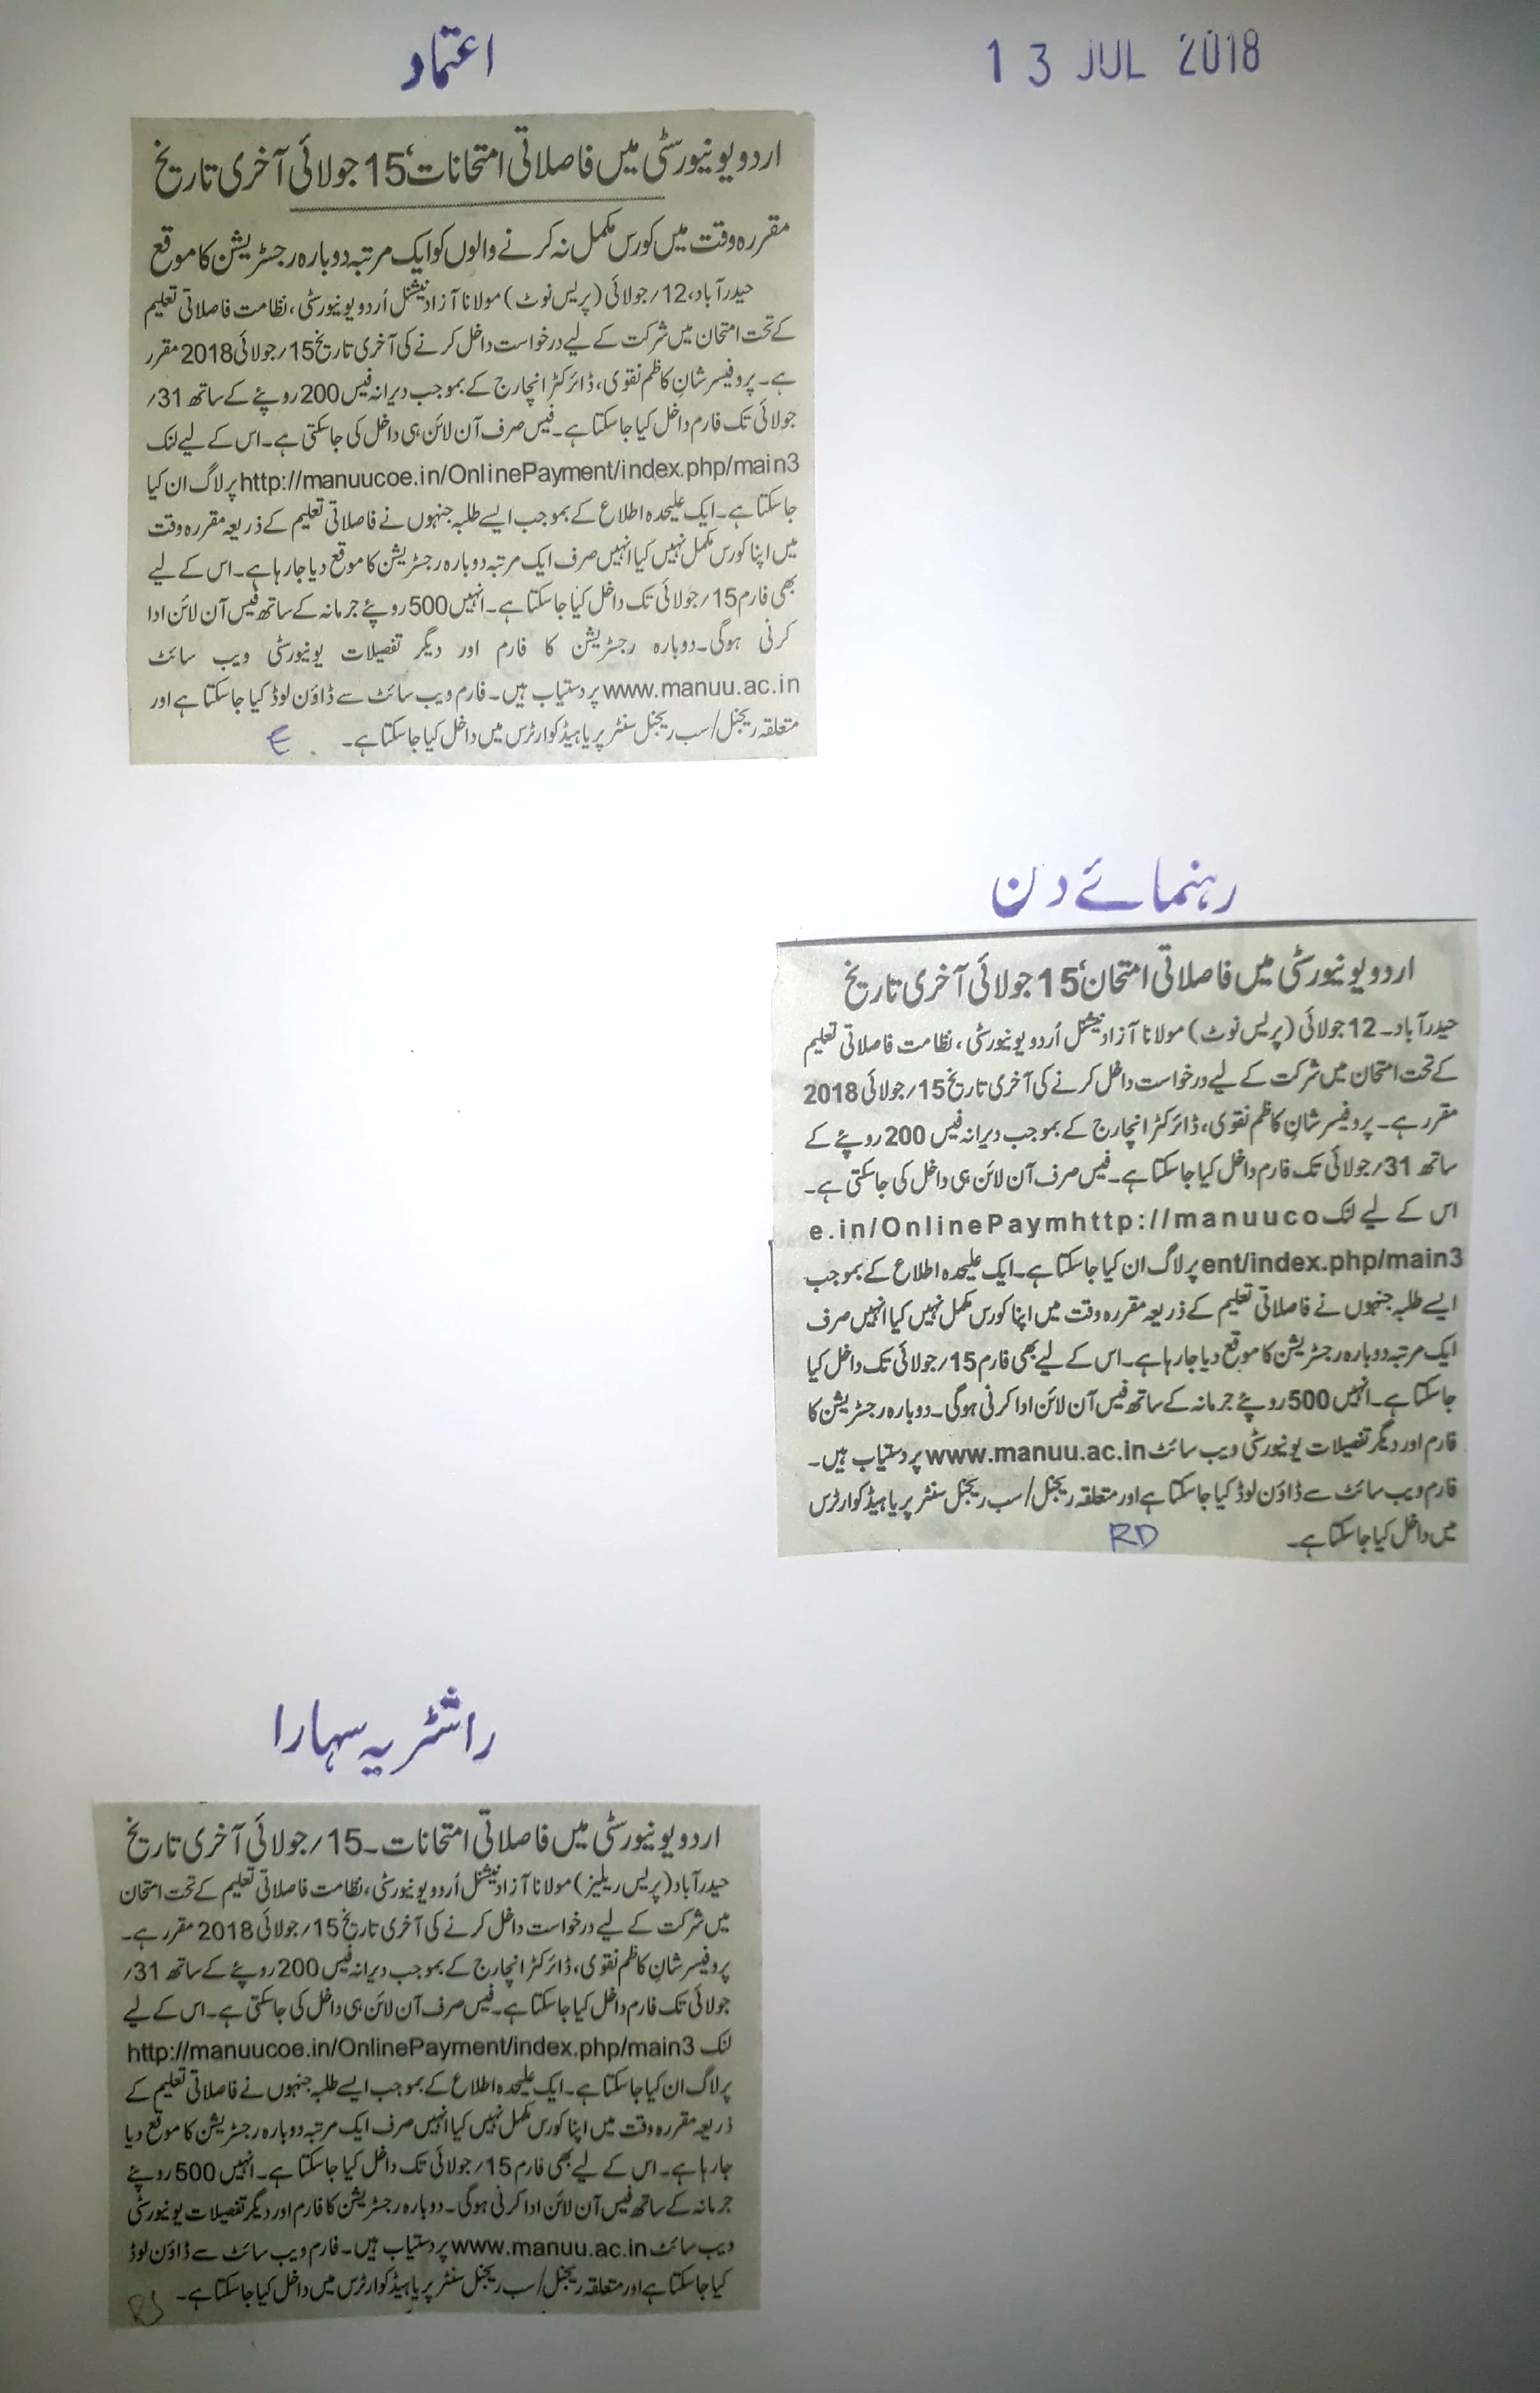 اعتماد
13 JUL 2018
اردو یونیورسٹی میں فاصلاتی امتحانات، 15 جولائی آخری تاریخ
مقررہ وقت میں کورس مکمل نہ کرنے والوں کو ایک مرتبہ دوبارہ رجسٹریشن کا موقع
حیدرآباد، 12/ جولائی (پریس نوٹ) مولانا آزاد نیشنل اُردو یونیورسٹی، نظامت فاصلاتی تعلیم
کے تحت امتحان میں شرکت کے لیے درخواست داخل کرنے کی آخری تاریخ 15/ جولائی 2018 مقرر
ہے۔ پروفیسر شانِ کاظم نقوی، ڈائرکٹر انچارج کے بموجب دیرانہ فیس 200 روپئے کے ساتھ 31/
جولائی تک فارم داخل کیا جاسکتا ہے۔ فیس صرف آن لائن ہی داخل کی جاسکتی ہے۔ اس کے لیے لنک
http://manuucoe.in/OnlinePayment/index.php/main3 پر لاگ ان کیا
جاسکتا ہے۔ ایک علیحدہ اطلاع کے بموجب ایسے طلبہ جنہوں نے فاصلاتی تعلیم کے ذریعہ مقررہ وقت
میں اپنا کورس مکمل نہیں کیا انہیں صرف ایک مرتبہ دوبارہ رجسٹریشن کا موقع دیا جارہا ہے۔ اس کے لیے
بھی فارم 15/ جولائی تک داخل کیا جاسکتا ہے۔ انہیں 500 روپئے جرمانہ کے ساتھ فیس آن لائن ادا
کرنی ہوگی۔ دوبارہ رجسٹریشن کا فارم اور دیگر تفصیلات یونیورسٹی ویب سائٹ
www.manuu.ac.in پر دستیاب ہیں۔ فارم ویب سائٹ سے ڈاؤن لوڈ کیا جاسکتا ہے اور
متعلقہ ریجنل/ سب ریجنل سنٹر پر یا ہیڈ کوارٹرس میں داخل کیا جاسکتا ہے۔
E
رہنمائے دن
اردو یونیورسٹی میں فاصلاتی امتحان، 15 جولائی آخری تاریخ
حیدرآباد۔ 12 جولائی (پریس نوٹ) مولانا آزاد نیشنل اُردو یونیورسٹی، نظامت فاصلاتی تعلیم
کے تحت امتحان میں شرکت کے لیے درخواست داخل کرنے کی آخری تاریخ 15/ جولائی 2018
مقرر ہے۔ پروفیسر شانِ کاظم نقوی، ڈائرکٹر انچارج کے بموجب دیرانہ فیس 200 روپئے کے
ساتھ 31/ جولائی تک فارم داخل کیا جاسکتا ہے۔ فیس صرف آن لائن ہی داخل کی جاسکتی ہے۔
اس کے لیے لنک e.in/OnlinePaymhttp://manuuco
ent/index.php/main3 پر لاگ ان کیا جاسکتا ہے۔ ایک علیحدہ اطلاع کے بموجب
ایسے طلبہ جنہوں نے فاصلاتی تعلیم کے ذریعہ مقررہ وقت میں اپنا کورس مکمل نہیں کیا انہیں صرف
ایک مرتبہ دوبارہ رجسٹریشن کا موقع دیا جارہا ہے۔ اس کے لیے بھی فارم 15/ جولائی تک داخل کیا
جاسکتا ہے۔ انہیں 500 روپئے جرمانہ کے ساتھ فیس آن لائن ادا کرنی ہوگی۔ دوبارہ رجسٹریشن کا
فارم اور دیگر تفصیلات یونیورسٹی ویب سائٹ www.manuu.ac.in پر دستیاب ہیں۔
فارم ویب سائٹ سے ڈاؤن لوڈ کیا جاسکتا ہے اور متعلقہ ریجنل/ سب ریجنل سنٹر پر یا ہیڈ کوارٹرس
میں داخل کیا جاسکتا ہے۔
RD
راشٹریہ سہارا
اردو یونیورسٹی میں فاصلاتی امتحانات۔ 15/ جولائی آخری تاریخ
حیدرآباد (پریس ریلیز) مولانا آزاد نیشنل اُردو یونیورسٹی، نظامت فاصلاتی تعلیم کے تحت امتحان
میں شرکت کے لیے درخواست داخل کرنے کی آخری تاریخ 15/ جولائی 2018 مقرر ہے۔
پروفیسر شانِ کاظم نقوی، ڈائرکٹر انچارج کے بموجب دیرانہ فیس 200 روپئے کے ساتھ 31/
جولائی تک فارم داخل کیا جاسکتا ہے۔ فیس صرف آن لائن ہی داخل کی جاسکتی ہے۔ اس کے لیے
لنک http://manuucoe.in/OnlinePayment/index.php/main3
پر لاگ ان کیا جاسکتا ہے۔ ایک علیحدہ اطلاع کے بموجب ایسے طلبہ جنہوں نے فاصلاتی تعلیم کے
ذریعہ مقررہ وقت میں اپنا کورس مکمل نہیں کیا انہیں صرف ایک مرتبہ دوبارہ رجسٹریشن کا موقع دیا
جارہا ہے۔ اس کے لیے بھی فارم 15/ جولائی تک داخل کیا جاسکتا ہے۔ انہیں 500 روپئے
جرمانہ کے ساتھ فیس آن لائن ادا کرنی ہوگی۔ دوبارہ رجسٹریشن کا فارم اور دیگر تفصیلات یونیورسٹی
ویب سائٹ www.manuu.ac.in پر دستیاب ہیں۔ فارم ویب سائٹ سے ڈاؤن لوڈ
کیا جاسکتا ہے اور متعلقہ ریجنل/ سب ریجنل سنٹر پر یا ہیڈ کوارٹرس میں داخل کیا جاسکتا ہے۔
RS